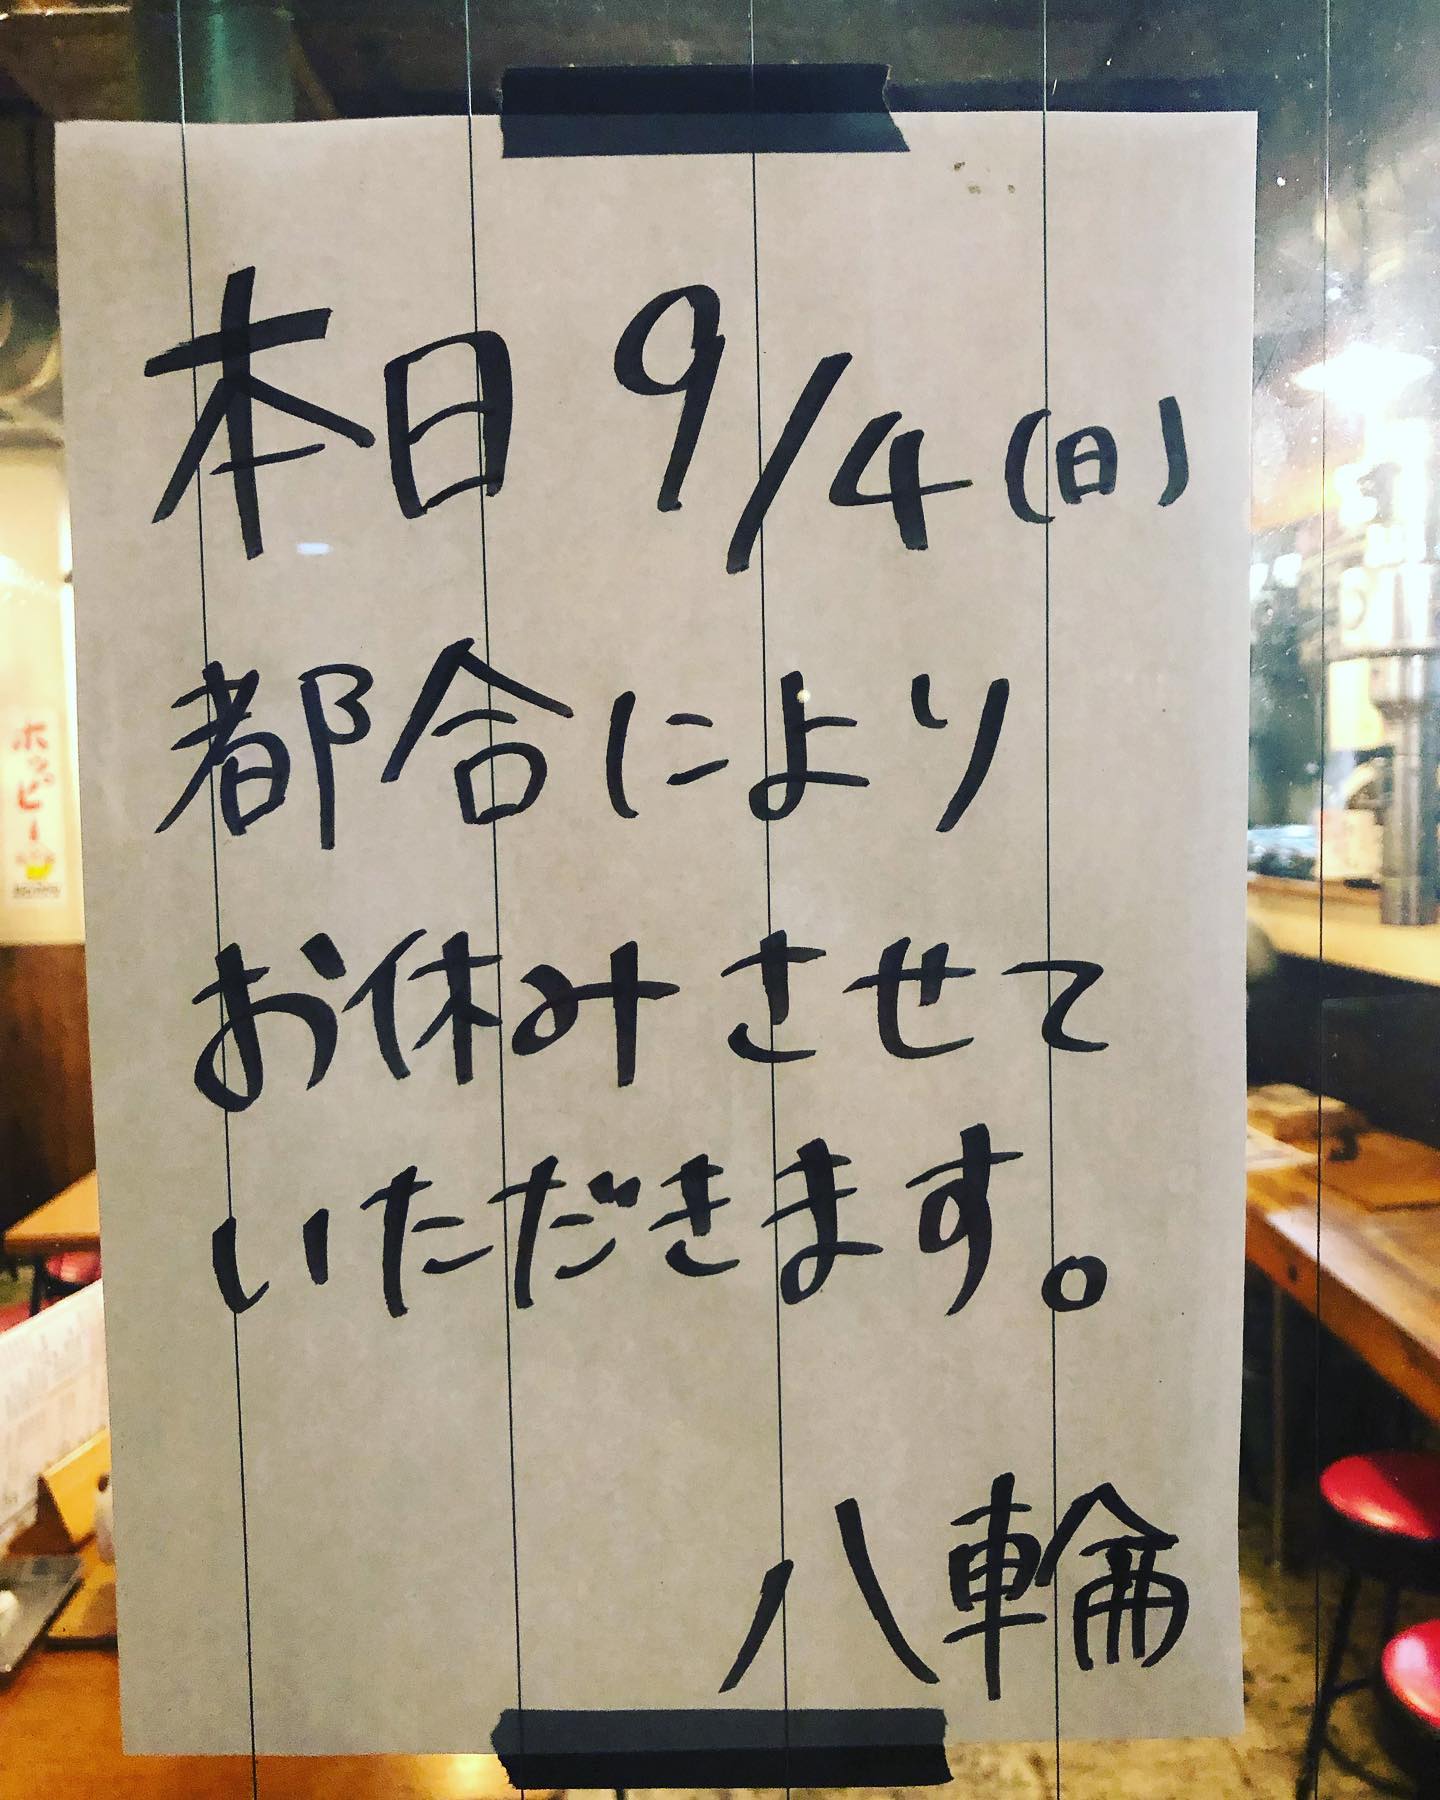 本日 9/4(日)
都合により
お休みさせて
いただきます。
八輪
ホッピー